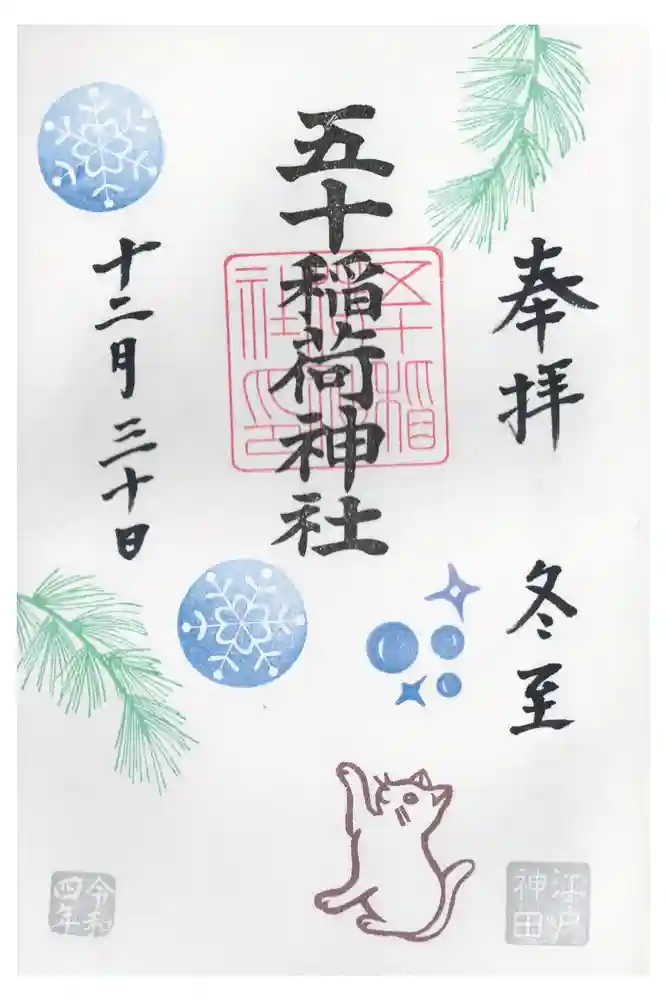 奉拝
冬至
五十稲荷神社
五十稲
荷神
社印
十二月三十日
江戸
神田
令和
四年